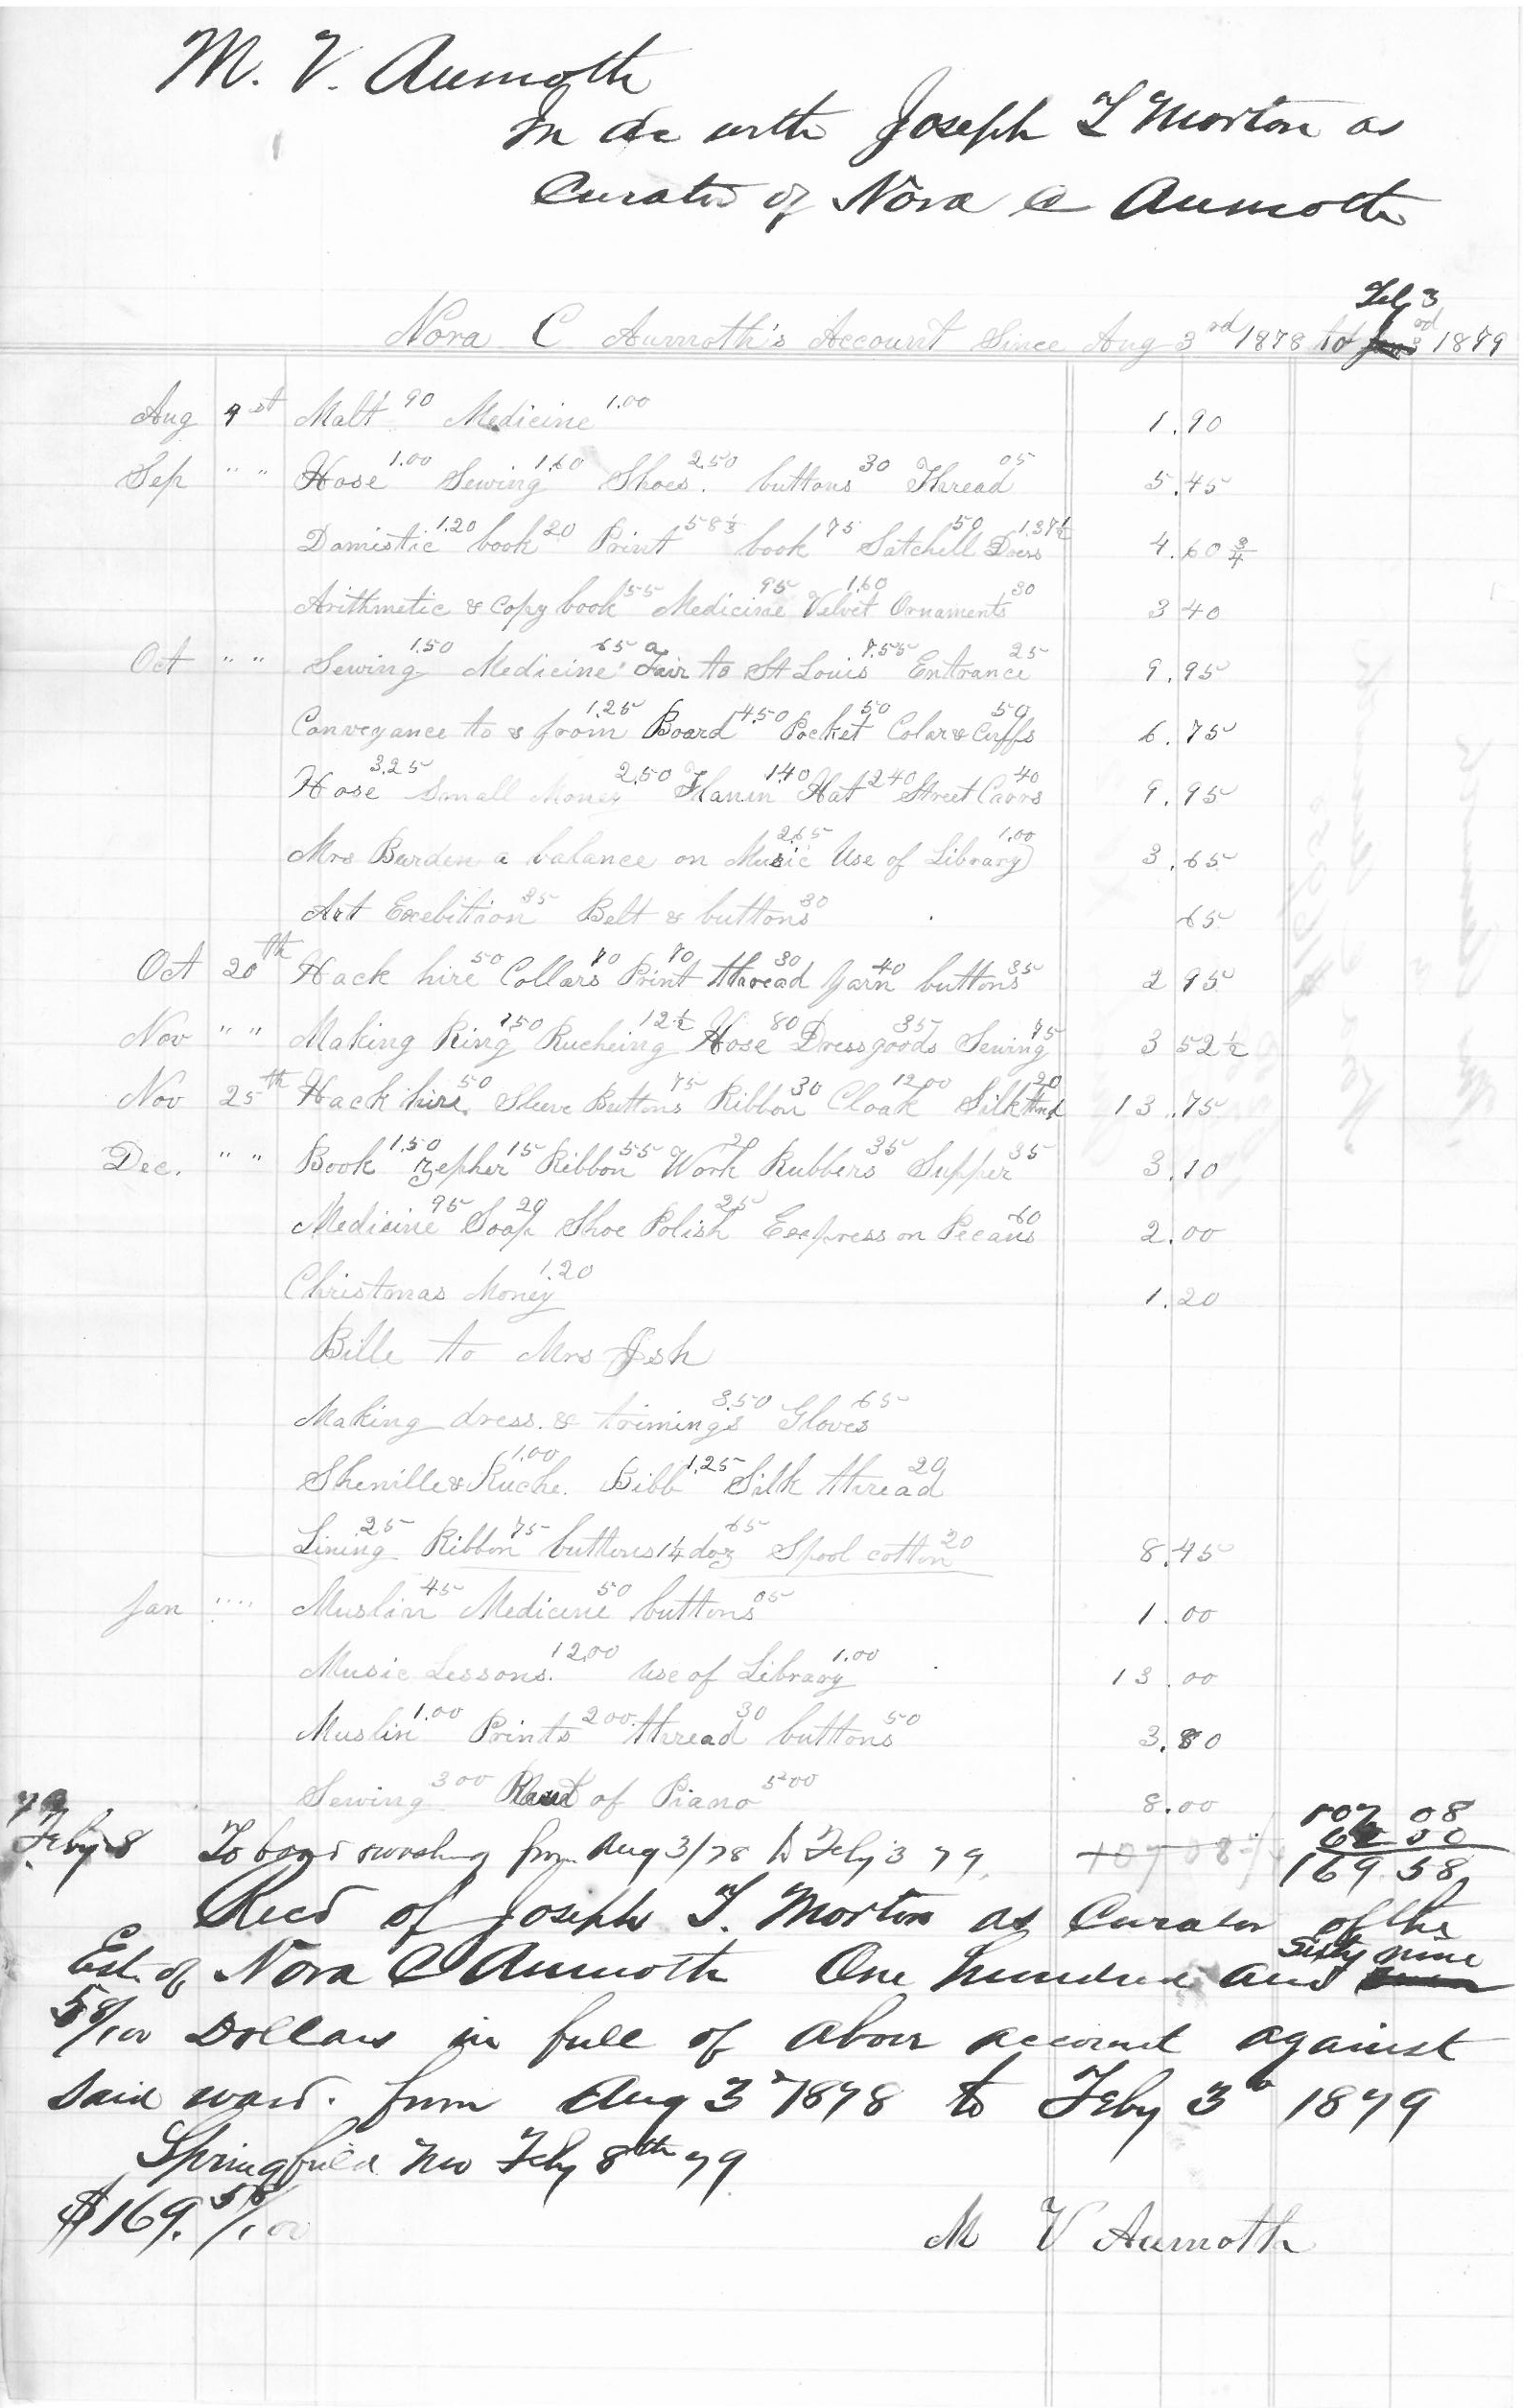 M. V. Aumoth
In ac with Joseph T Morton as
Curator of Nora C Aumoth
Feb 3
Nora C Aumoth's Account Since Aug 3rd 1878 to Jan 3rd 1879
Aug 1st Malt 90 Medicine 1.00 1.90
Sep " " Hose 1.00 Sewing 1.60 Shoes. 2.50 buttons 30 Thread 05 5.45
Domistic 1.20 book 20 Print 58 1/3 book 75 Satchell 50 Dress 1.37 1/2 4.60 3/4
Arithmetic & Copy book 55 Medicine 95 Velvet 1.60 Ornaments 30 3 40
Oct " " Sewing 1.50 Medicine 65 a Fair to St Louis 7.55 Entrance 25 9.95
Conveyance to & from 1.25 Board 4.50 Pocket 50 Colar & Cuffs 50 6.75
Hose 3.25 Small Money 2.50 Flanin 1.40 Hat 2 40 Street Carrs 40 9.95
Mrs Burden a balance on Music 2.65 Use of Library 1.00 3.65
Art Exebition 35 Belt & buttons 30 65
Oct 20th Hack hire 50 Collars 70 Print 70 thread 30 Yarn 40 buttons 35 2 95
Nov " " Making Ring 1.50 Rucheing 12 1/2 Hose 80 Dress goods 35 Sewing 75 3 52 1/2
Nov 25th Hack hire 50 Sleeve Buttons 75 Ribbon 30 Cloak 12.00 Silk thrd 20 13.75
Dec. " " Book 1.50 Zepher 15 Ribbon 55 Work 20 Rubbers 35 Supper 35 3.10
Medicine 95 Soap 20 Shoe Polish 25 Express on Pecans 60 2.00
Christmas Money 1.20 1.20
Bille to Mrs Ish
Making dress. & trimings 3.50 Gloves 65
Shenille & Ruche. 1.00 Bibb 1.25 Silk thread 20
Lining 25 Ribbon 75 buttons 1 1/4 doz 65 Spool cotton 20 8.45
Jan " " Muslin 45 Medicine 50 buttons 05 1.00
Music Lessons. 12.00 Use of Library 1.00 13.00
Muslin 1.00 Prints 2 00 thread 30 buttons 50 3.80
Sewing 3 00 Rent of Piano 5.00 8.00
79 107 08
Feby 8 To board & washing from Aug 3/78 to Feby 3 79. 107 08 62 50
169.58
Recd of Joseph T. Morton as Curator of the
Est. of Nora C Aumoth One hundred and sixty nine
58/100 Dollars in full of above account against
said ward. from Aug 3d 1878 to Feby 3d 1879
Springfield Mo Feby 8th 79
$169. 58/100
M V Aumoth